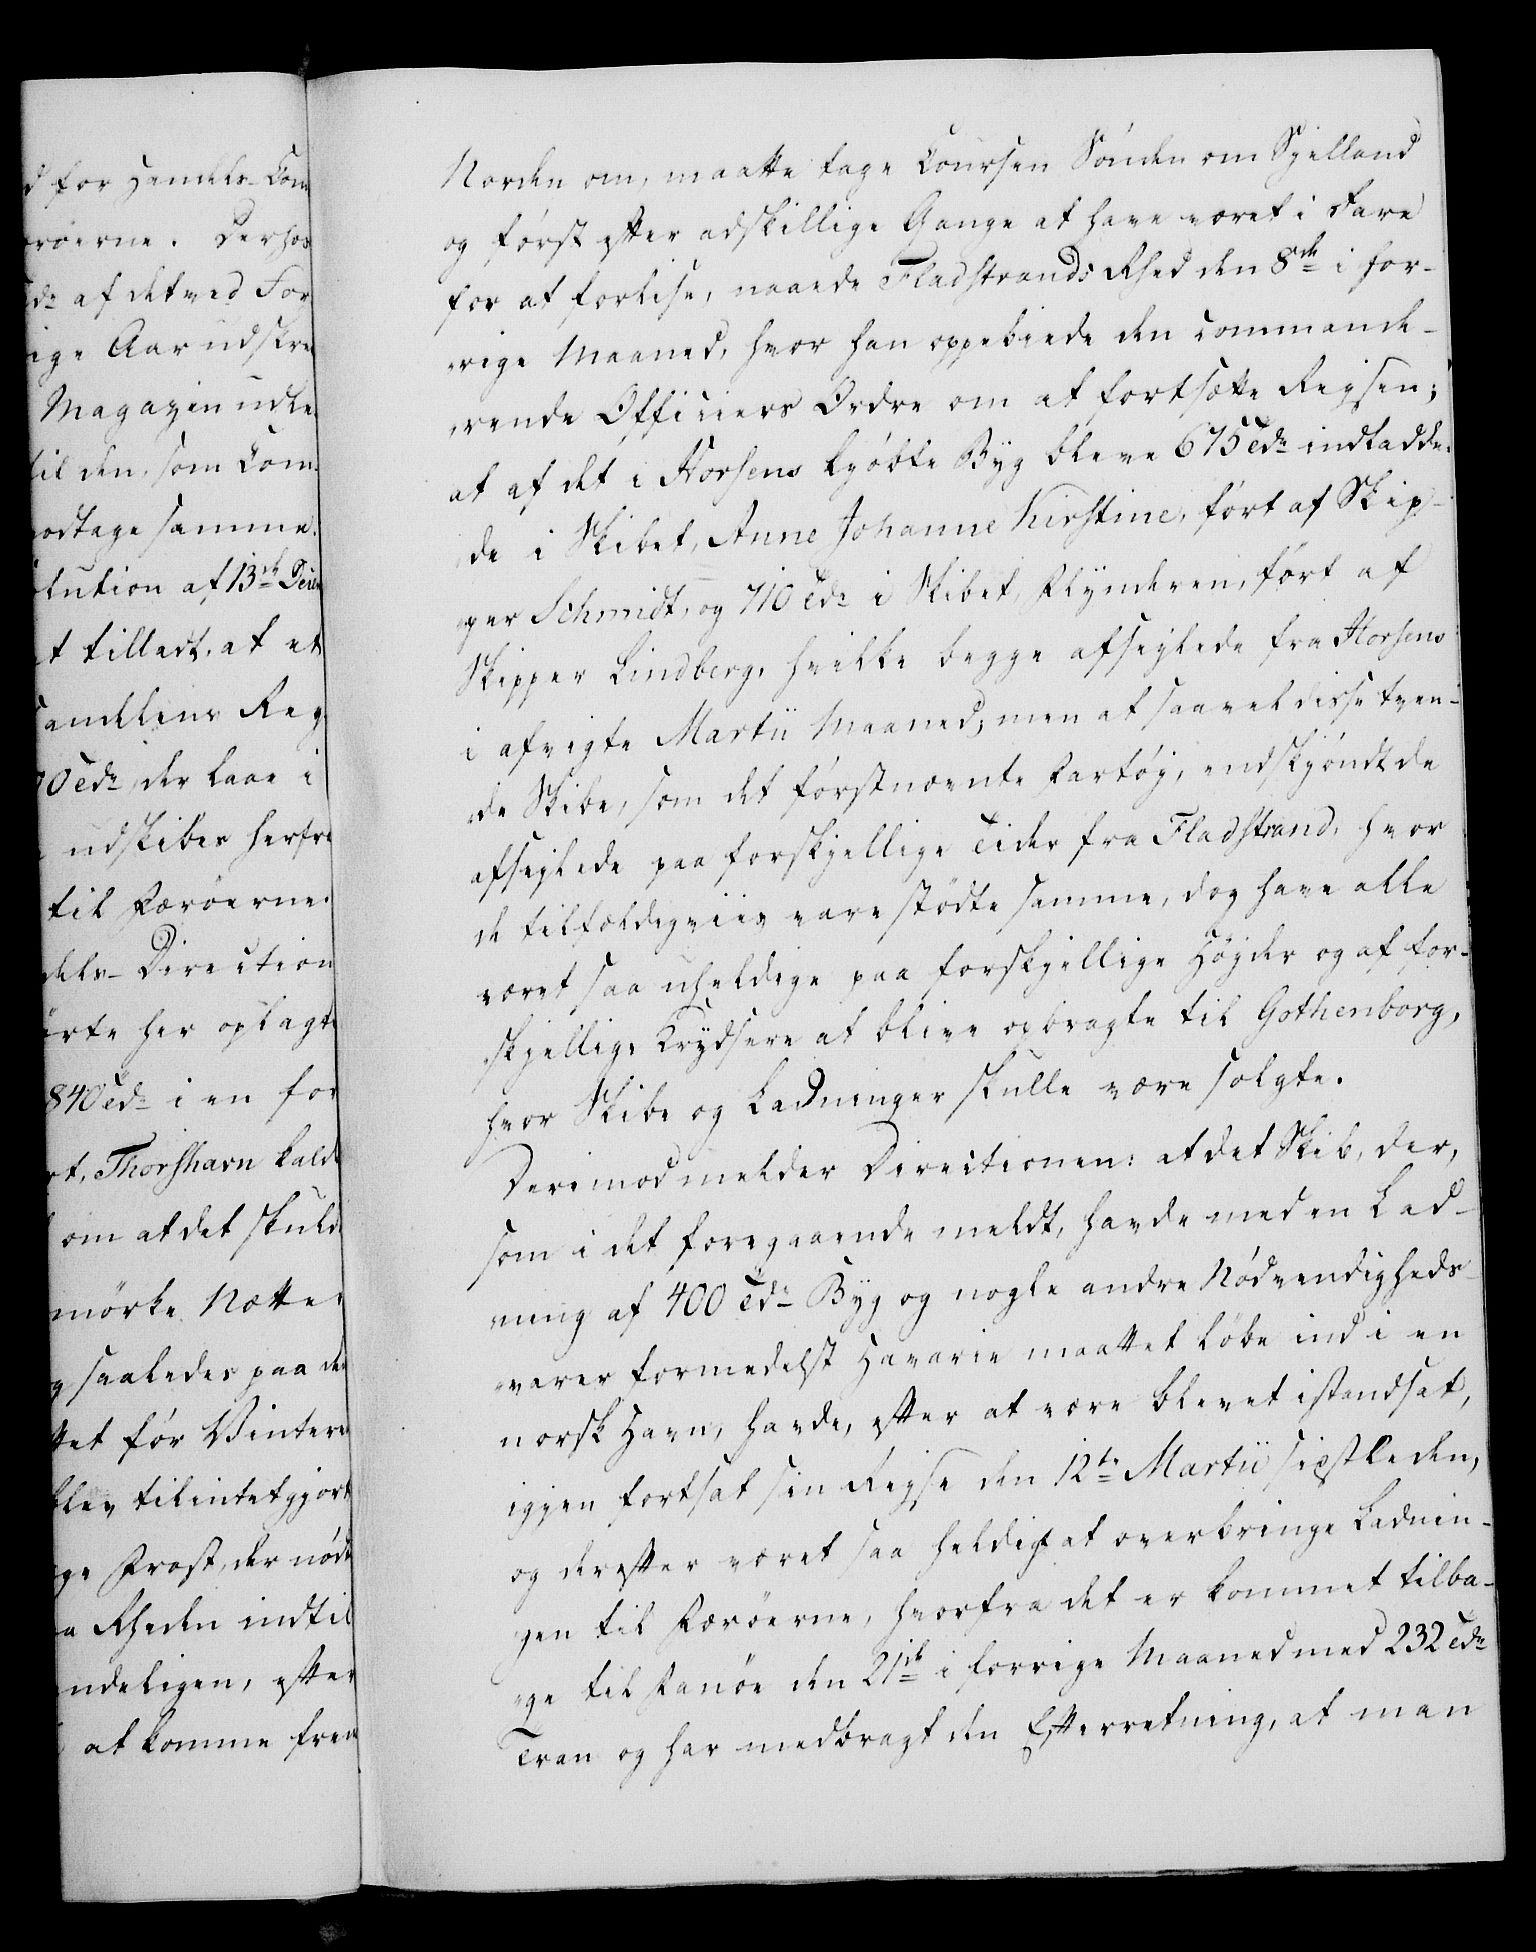 d for Handels-Com
œröerne. Derhos
Tdr af det ved For
ige Aar udskre
Magazin udle
til den, som Com
odtage samme.
lution af 13de Decm
t tilladt, at et
andelens Reg
0 Tdr, der laae i
udskibes herfra
til Færöerne.
dels-Direction
rte her oplagte
840 Tdr i en for
rt, Thorshavn kald
om at det skuld
mörke Nætte
g saaledes paa de
ttet för Vintere
blev tilintetgjort
ge Frost, der nöd
a Rheden indtil
ndeligen, efter
at komme frem
Norden om, maatte tage Coursen Sönden om Sjelland
og først efter adskillige Gange at have været i Fare
for at forlise, naaede Fladstrands Rhed den 8de i for-
rige Maaned, hvor han oppebiede den commande-
rende Officiers Ordre om at fortsætte Rejsen;
at af det i Horsens kjöbte Byg bleve 675 Tdr indladde-
de i Skibet, Anne Johanne Kirstine, fört af Skip-
per Schmidt, og 710 Tdr i Skibet, Flynderen, fört af
Skipper Lindberg, hvilke begge afseglede fra Horsens
i afvigte Martii Maaned; men at saavel disse tven-
de Skibe, som det förstnævnte Fartöj, endskjöndt de
afseglede paa forskjellige Tider fra Fladstrand, hvor
de tilfældigviis vare stödte samme, dog have alle
været saa uheldige paa forskjellige Höjder og af for-
skjellige Krydsere at blive opbragte til Gothenborg,
hvor Skibe og Ladninger skulle være solgte.
Derimod melder Directionen: at det Skib, der,
som i det foregaaende meldt, havde med en Lad-
ning af 400 Tdr Byg og nogle andre Nödvendigheds-
varer formedelst Havarie maattet löbe ind i en
norsk Havn, havde, efter at være blevet istandsat,
igjen fortsat sin Rejse den 12te Martii sidstleden,
og derefter været saa heldigt at overbringe Ladnin-
gen til Færöerne, hvorfra det er kommet tilba-
ge til Fanöe den 21de i forrige Maaned med 232 Tdr
Tran og har medbragt den Efterretning, at man